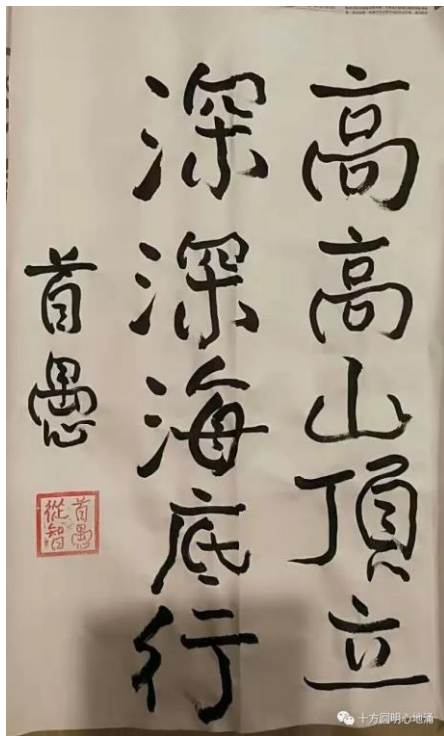 高高山頂立
深深海底行
首愚
首愚
從智
十方圆明心地涌